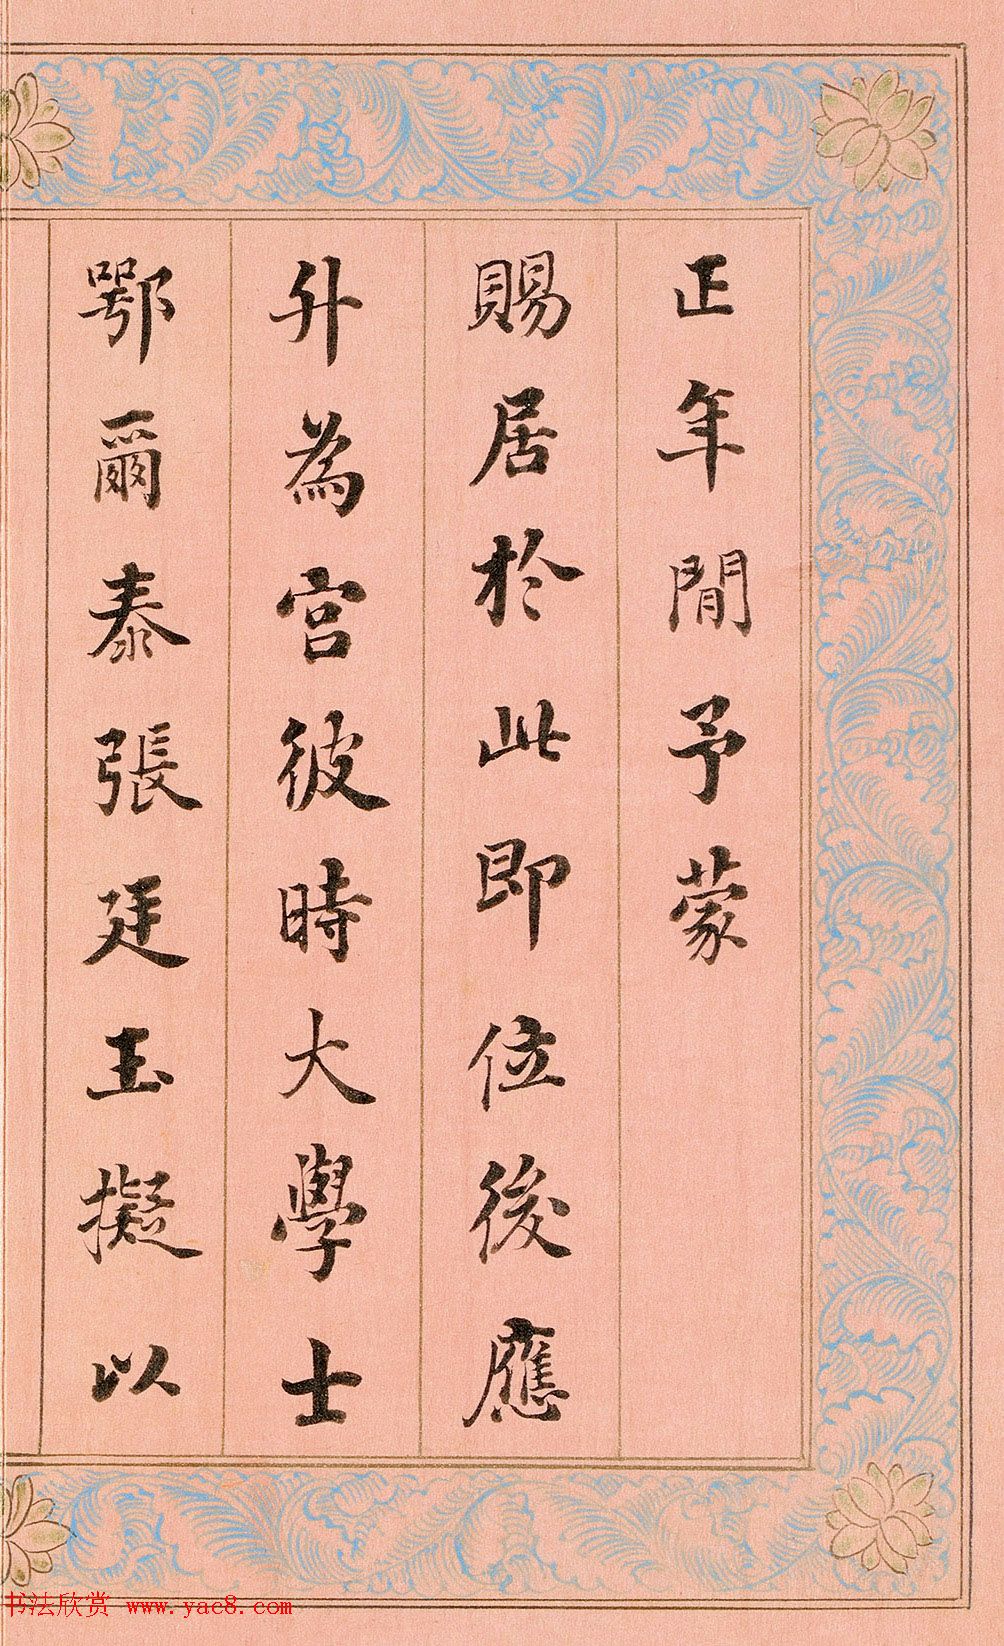 正年間予蒙
賜居於此即位後應
升為宮彼時大學士
鄂爾泰張廷玉擬以
书法欣赏 www.yac8.com